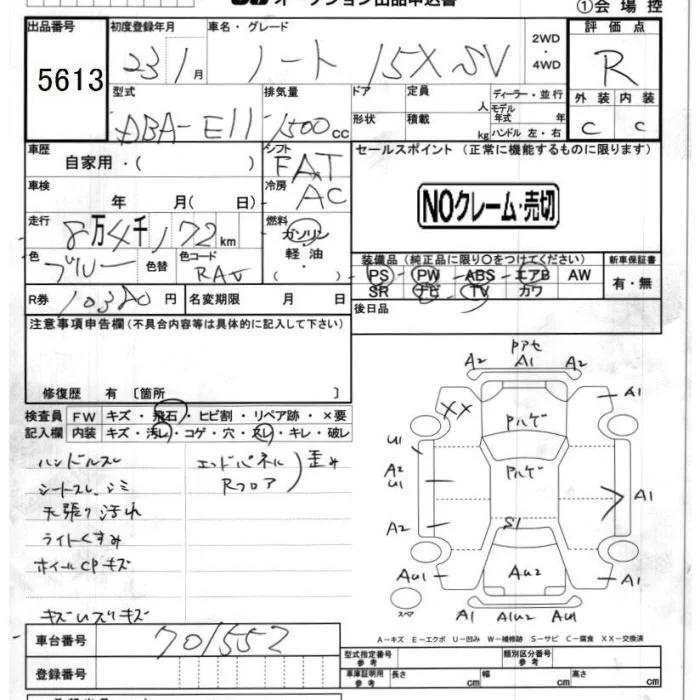 オークション出品申込書
①会場控
出品番号 初度登録年月 車名・グレード 2WD・4WD 評価点
5613 23 1月 ノート 15X SV R
型式 排気量 ドア 定員 人 ディーラー・並行 外装 内装
ABA-E11 1500cc 形状 積載 kg モデル年式 年 ハンドル 左・右 C C
車歴 自家用・( ) シフト FAT セールスポイント (正常に機能するものに限ります)
車検 年 月( 日) 冷房 AC
NOクレーム・売切
走行 8万4千172km 燃料 ガソリン 軽油 ・( )
色 ブルー 色替 色コード RAV
装備品 (純正品に限り○をつけてください) 新車保証書
PS PW ABS エアB AW 有・無
SR ナビ TV カワ
R券 10380円 名変期限 月 日
後日品
注意事項申告欄(不具合内容等は具体的に記入して下さい)
修復歴 有 〔箇所 〕
検査員 FW キズ・飛石・ヒビ割・リペア跡・×要
記入欄 内装 キズ・汚レ・コゲ・穴・スレ・キレ・破レ
ハンドルスレ エンドパネル 歪み
シートスレ、シミ Rフロア
天張り汚れ
ライトくすみ
ホイールCPキズ
キズいズリキズ
ドアセ
A2 A1 A2
XX Pハゲ A1
U1
A2 Pハゲ
U1 A1
A2 S1
AU1 AU2 A1
スペア A1 A1U2 AU1
A-キズ E-エクボ U-凹み W-補修跡 S-サビ C-腐食 XX-交換済
車台番号 701552
型式指定番号 参考 類別区分番号 参考
登録番号 車庫証明用 参考 長さ cm 幅 cm 高さ cm